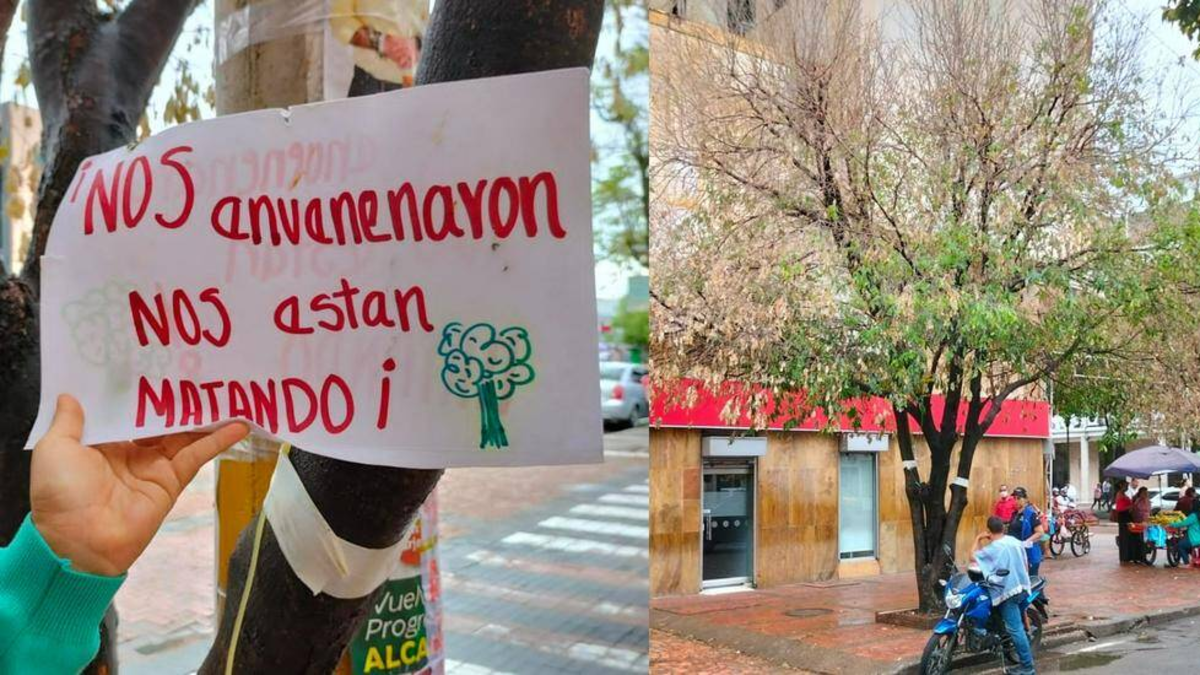 ¡NOS envenenaron
NOS estan
MATANDO ¡
Vuel
Progr
ALCA